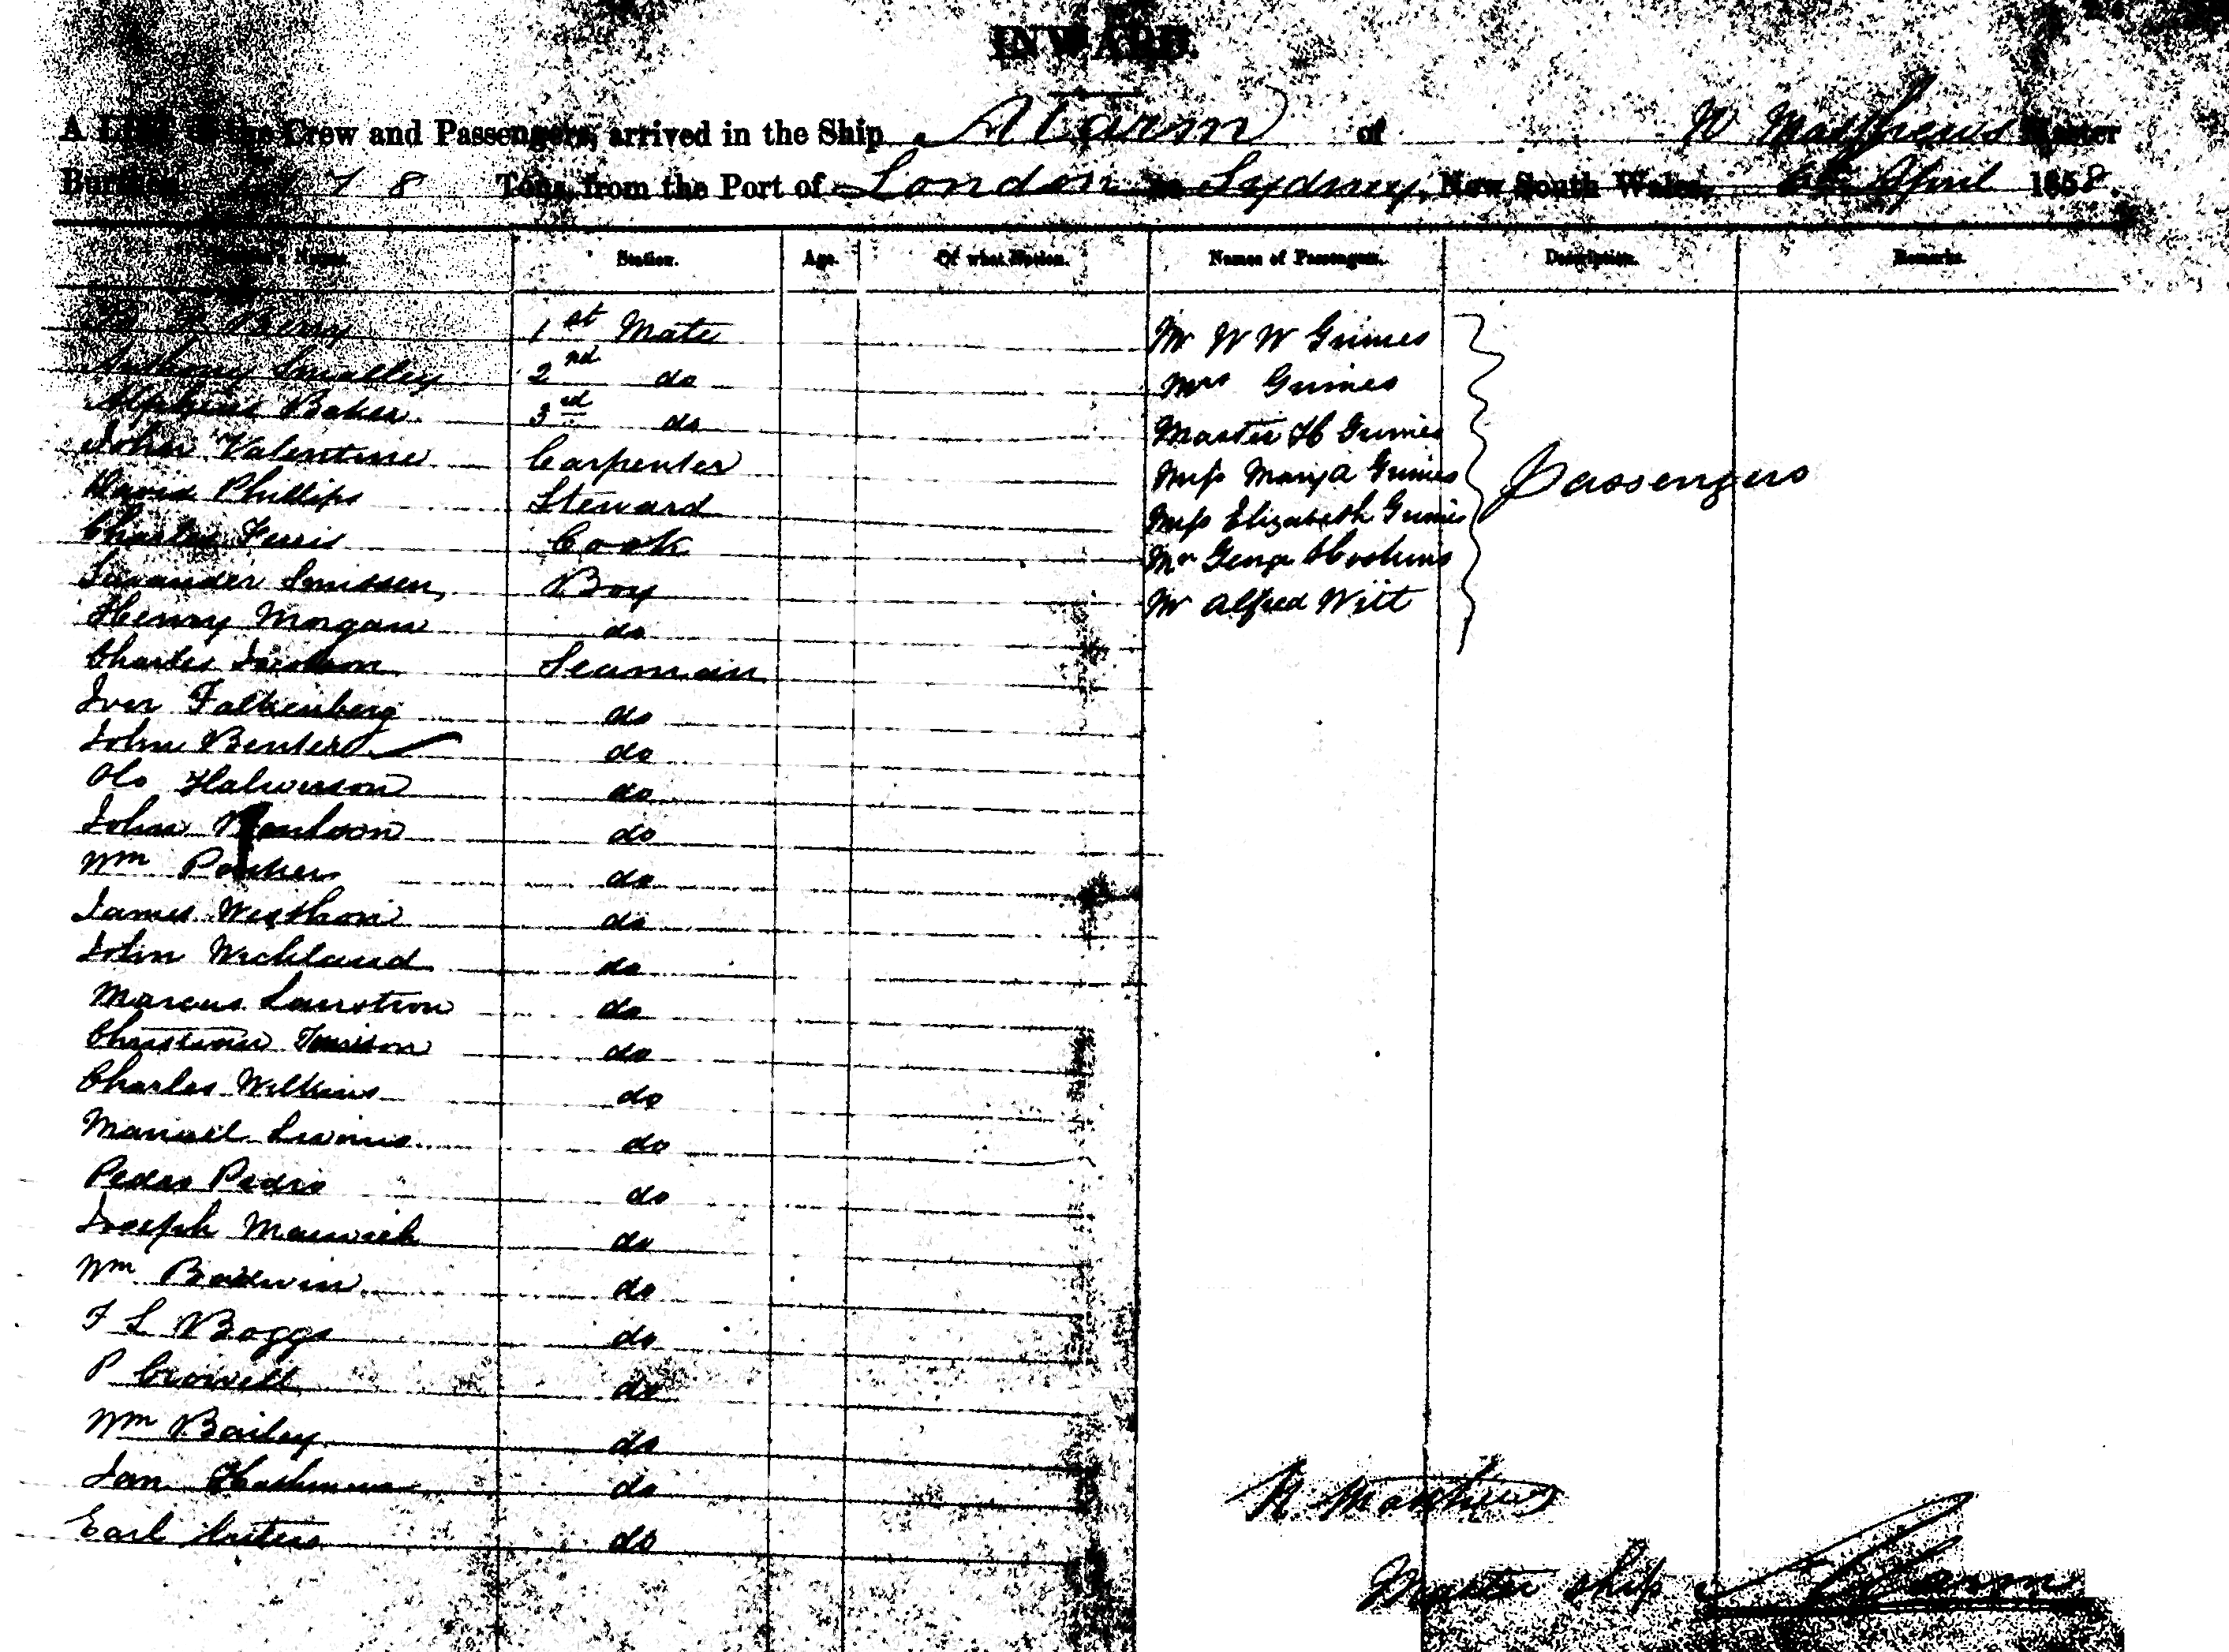 INWARD.
A LIST of the Crew and Passengers, arrived in the Ship Alarm of W Matthews Master
Burthen 7 8 Tons, from the Port of London to Sydney, New South Wales, 6th April 1858.
Station. Age. Of what Nation. Names of Passengers. Description. Remarks.
Berry 1st Mate Mr W W Grimes
Anthony Smalley 2nd do Mrs Grimes
Alpheus Baker 3rd do Master H Grimes
John Valentine Carpenter Miss Mary A Grimes Passengers
David Phillips Steward Miss Elizabeth Grimes
Charles Ferris Cook Mr George Hoskins
Boy Mr Alfred Witt
Henry Morgan do
Charles Seaman
Iver Falkenberg do
John Benter do
Olo Halverson do
John do
Wm do
James do
John Wickland do
Marcus do
Christian do
Charles Wilkins do
Manuel do
Pedro Pedro do
Joseph do
Wm Baldwin do
F L Boggs do
P Crowell do
Wm Bailey do
do
Earl do
W. Matthews
Master ship Alarm